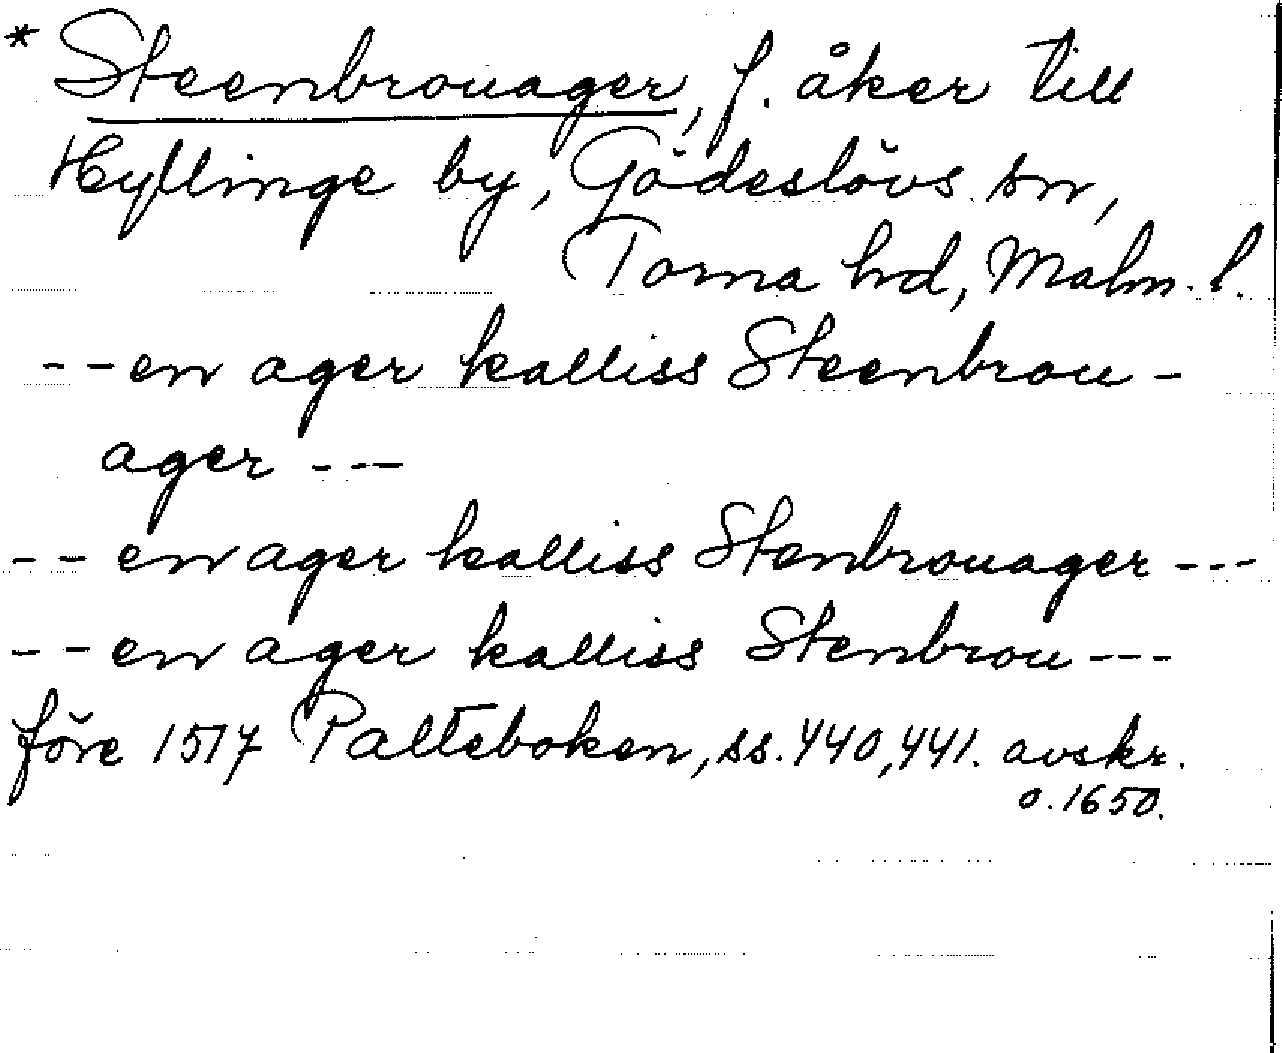 * Steenbrouager, f. åker till
Hyllinge by, Gödeslövs sn,
Torna hd, Malm. l.
-- en ager kalliss Steenbrou-
ager ---
-- en ager kalliss Stenbrouager ---
-- en ager kalliss Stenbrou ---
före 1517 Palteboken, ss. 440, 441. avskr.
o. 1650.